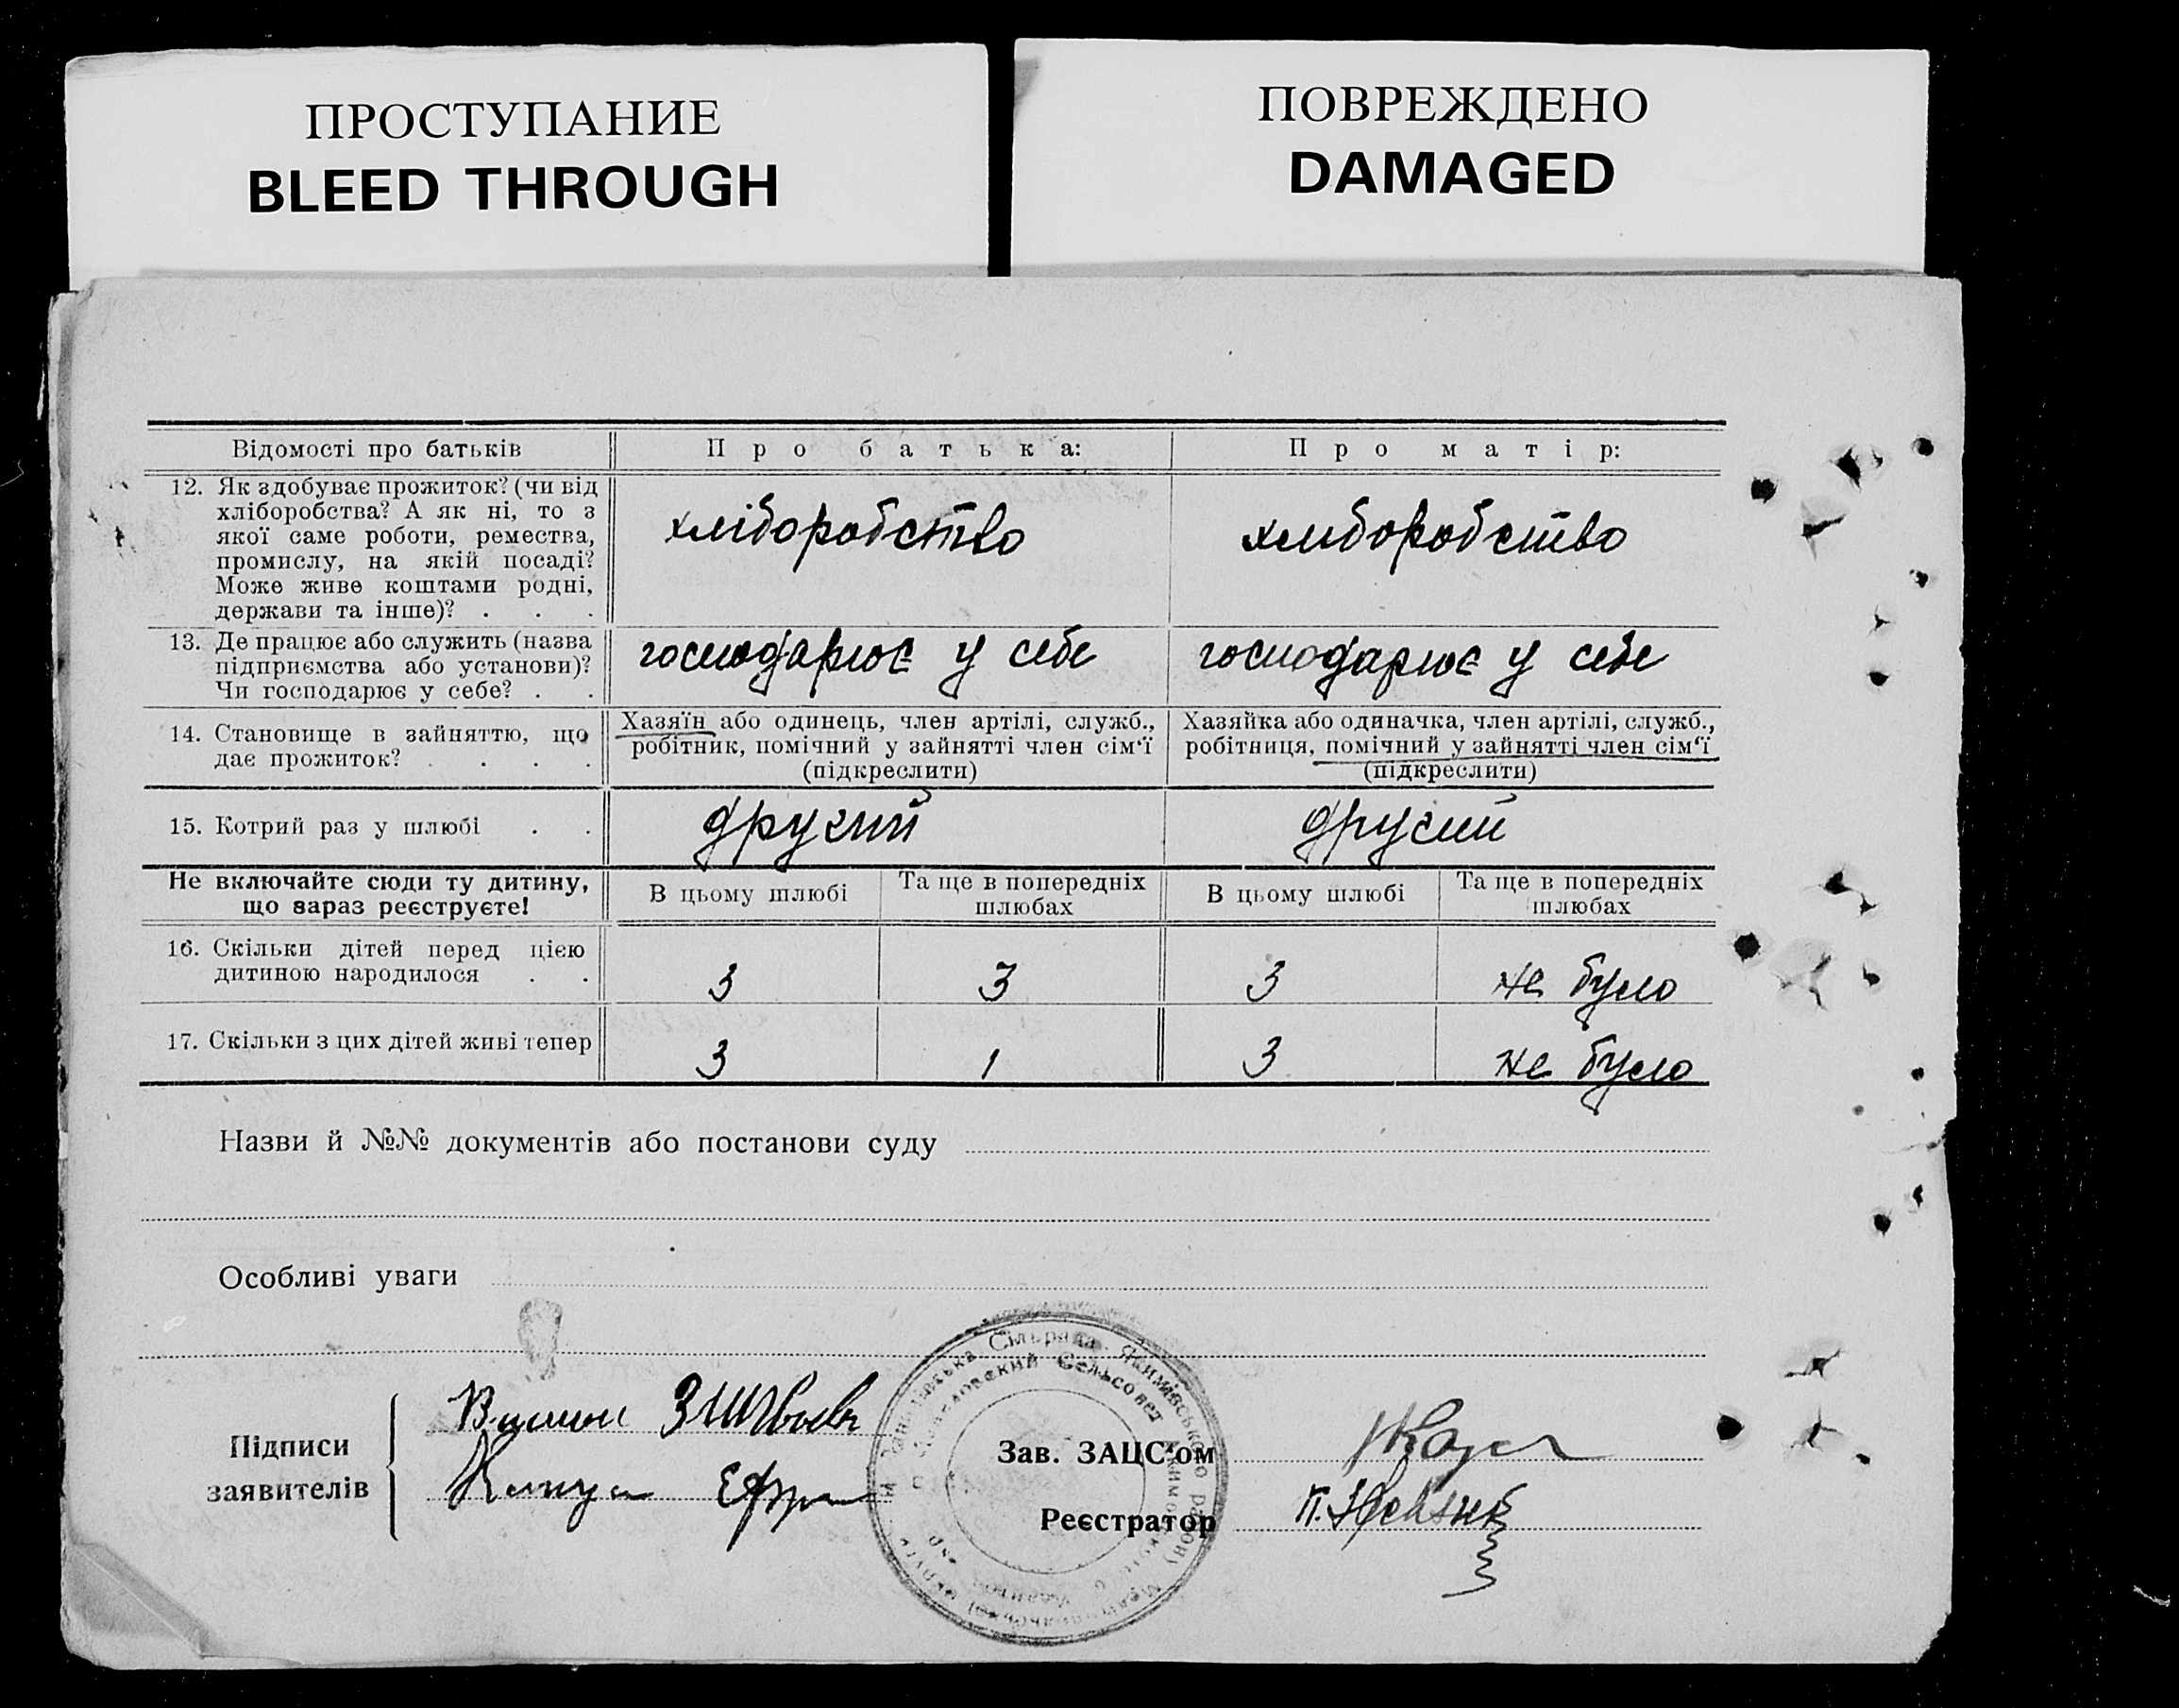 ПРОСТУПАНИЕ
BLEED THROUGH
ПОВРЕЖДЕНО
DAMAGED
Відомості про батьків Про батька: Про матір:
12. Як здобуває прожиток? (чи від
хліборобства? А як ні, то з
якої саме роботи, ремества,
промислу, на якій посаді?
Може живе коштами родні,
держави та інше)? . . .
хліборобство хлиборобство
13. Де працює або служить (назва
підприємства або установи)?
Чи господарює у себе? . .
господарює у себе господарює у себе
14. Становище в зайняттю, що
дає прожиток? . . . .
Хазяїн або одинець, член артілі, служб.,
робітник, помічний у зайнятті член сім'ї
(підкреслити)
Хазяйка або одиначка, член артілі, служб.,
робітниця, помічний у зайнятті член сім'ї
(підкреслити)
15. Котрий раз у шлюбі . . другий другий
Не включайте сюди ту дитину,
що зараз реєструєте!
В цьому шлюбі Та ще в попередніх
шлюбах
В цьому шлюбі Та ще в попередніх
шлюбах
16. Скільки дітей перед цією
дитиною народилося . .
3 3 3 не було
17. Скільки з цих дітей живі тепер 3 1 3 не було
Назви й №№ документів або постанови суду
Особливі уваги
Підписи
заявителів
Зав. ЗАЦС'ом
Реєстратор П.
Сільрада Якимівського району
Сельсовет